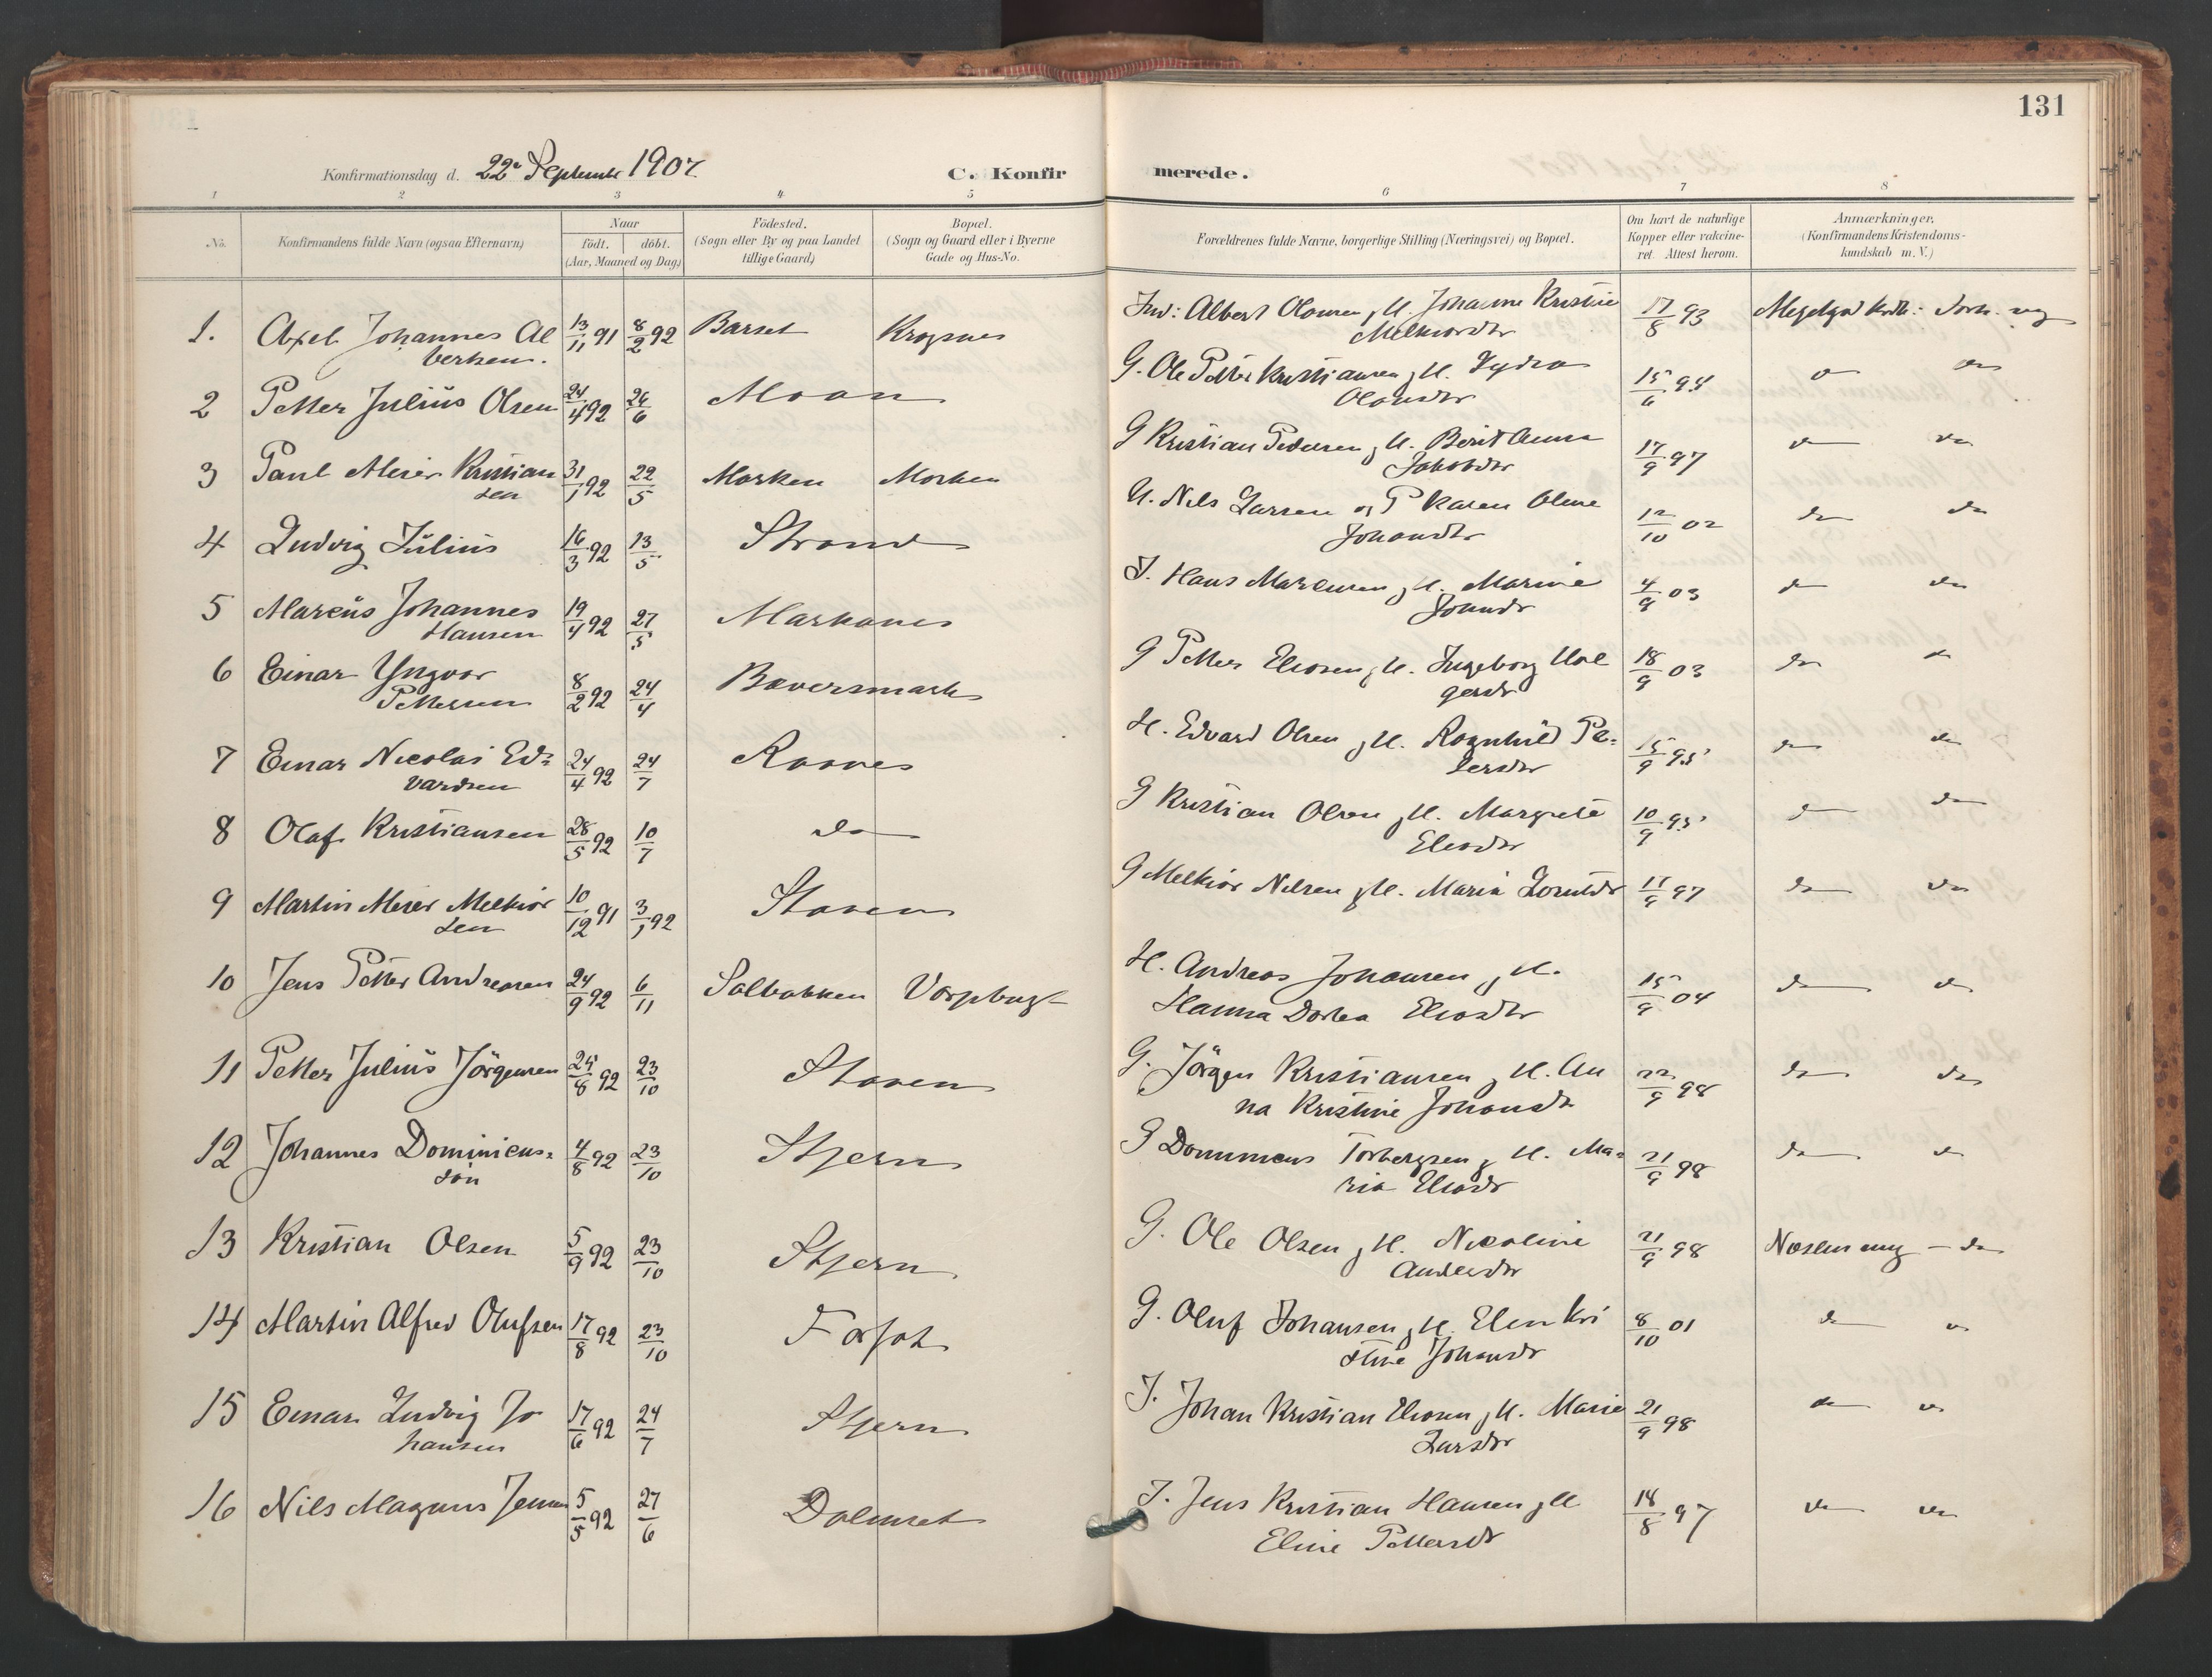 131
Konfirmationsdag d. 22de September 1907
C. Konfirmerede.
1 2 3 4 5 6 7 8
No.
Konfirmandens fulde Navn (ogsaa Efternavn)
Naar
födt. döbt.
(Aar, Maaned og Dag)
Födested.
(Sogn eller By og paa Landet
tillige Gaard)
Bopæl.
(Sogn og Gaard eller i Byerne
Gade og Hus-No.
Forældrenes fulde Navne, borgerlige Stilling (Næringsvei) og Bopæl.
Om havt de naturlige
Kopper eller vakcine-
ret. Attest herom.
Anmærkninger.
(Konfirmandens Kristendoms-
kundskab m. V.)
1. Axel Johannes Al 13/11 91 8/2 92 Barset Krogsnes Albert Olausen, H. Johanne Kristine 17/8 93
bertsen. Melkiorsdtr
2 Petter Julius Olsen 24/4 92 26/6 Moan G. Ole Petter Kristiansen, H. Lydia 15/6 94
Olausdtr
3 Paul Meier Kristian 31/1 92 22/5 Morken Morken G Kristian Pedersen, H. Berit Anna 17/9 97
sen Jakobsdtr
4 Ludvig Julius 16/3 92 13/5 Strand U. Nils Larsen og P Karen Oline 12/10 02 do do
Johansdtr
5 Marcus Johannes 19/4 92 27/5 I. Hans Marcusen, H. Marine 4/9 03 do do
Hansen Johnsdr
6 Einar Yngvar 8/2 92 24/4 Bæversmark G Petter Eliasen, H. Ingeborg Hol 18/9 03 do do
Pettersen gersdr
7 Einar Nicolai Ed= 24/4 92 24/7 Raanes H. Edvard Olsen, H. Ragnhild Pe= 15/9 95 do do
vardsen dersdtr
8 Olaf Kristiansen 28/5 92 10/7 do G Kristian Olsen, H. Margrete 10/9 95 do do
Eliasdtr
9 Martin Meier Melkior 10/12 91 3/1 92 Staven G Melkior Nilsen, H. Maria 17/9 97 do do
sen
10 Jens Petter Andreasen 24/9 92 6/11 Solbakken H. Andreas Johansen, H. 15/9 04 do do
Hanna Dortea Eliasdtr
11 Petter Julius Jörgensen 25/8 92 23/10 Staven G. Jörgen Kristiansen, H. An 22/9 98 do do
na Kristine Johansdtr
12 Johannes Dominicus= 4/8 92 23/10 Stjern G Dominicus Torbergsen, H. Ma= 21/9 98 do do
sön ria Eliasdr
13 Kristian Olsen 5/9 92 23/10 Stjern G. Ole Olsen, H. Nicoline 21/9 98 Næsten mg — do
Andersdtr
14 Martin Alfred Olufsen 17/8 92 23/10 G. Oluf Johansen, H. Elen Kri 8/10 01 do do
stine Johansdr
15 Einar Ludvig Jo 17/6 92 24/7 Stjern I. Johan Kristian Eliasen, H. Marie 21/9 98 do do
hansen Larsdtr
16 Nils Magnus Jensen 5/5 92 27/6 I. Jens Kristian Hansen, H 18/8 97 do do
Eline Pettersdr